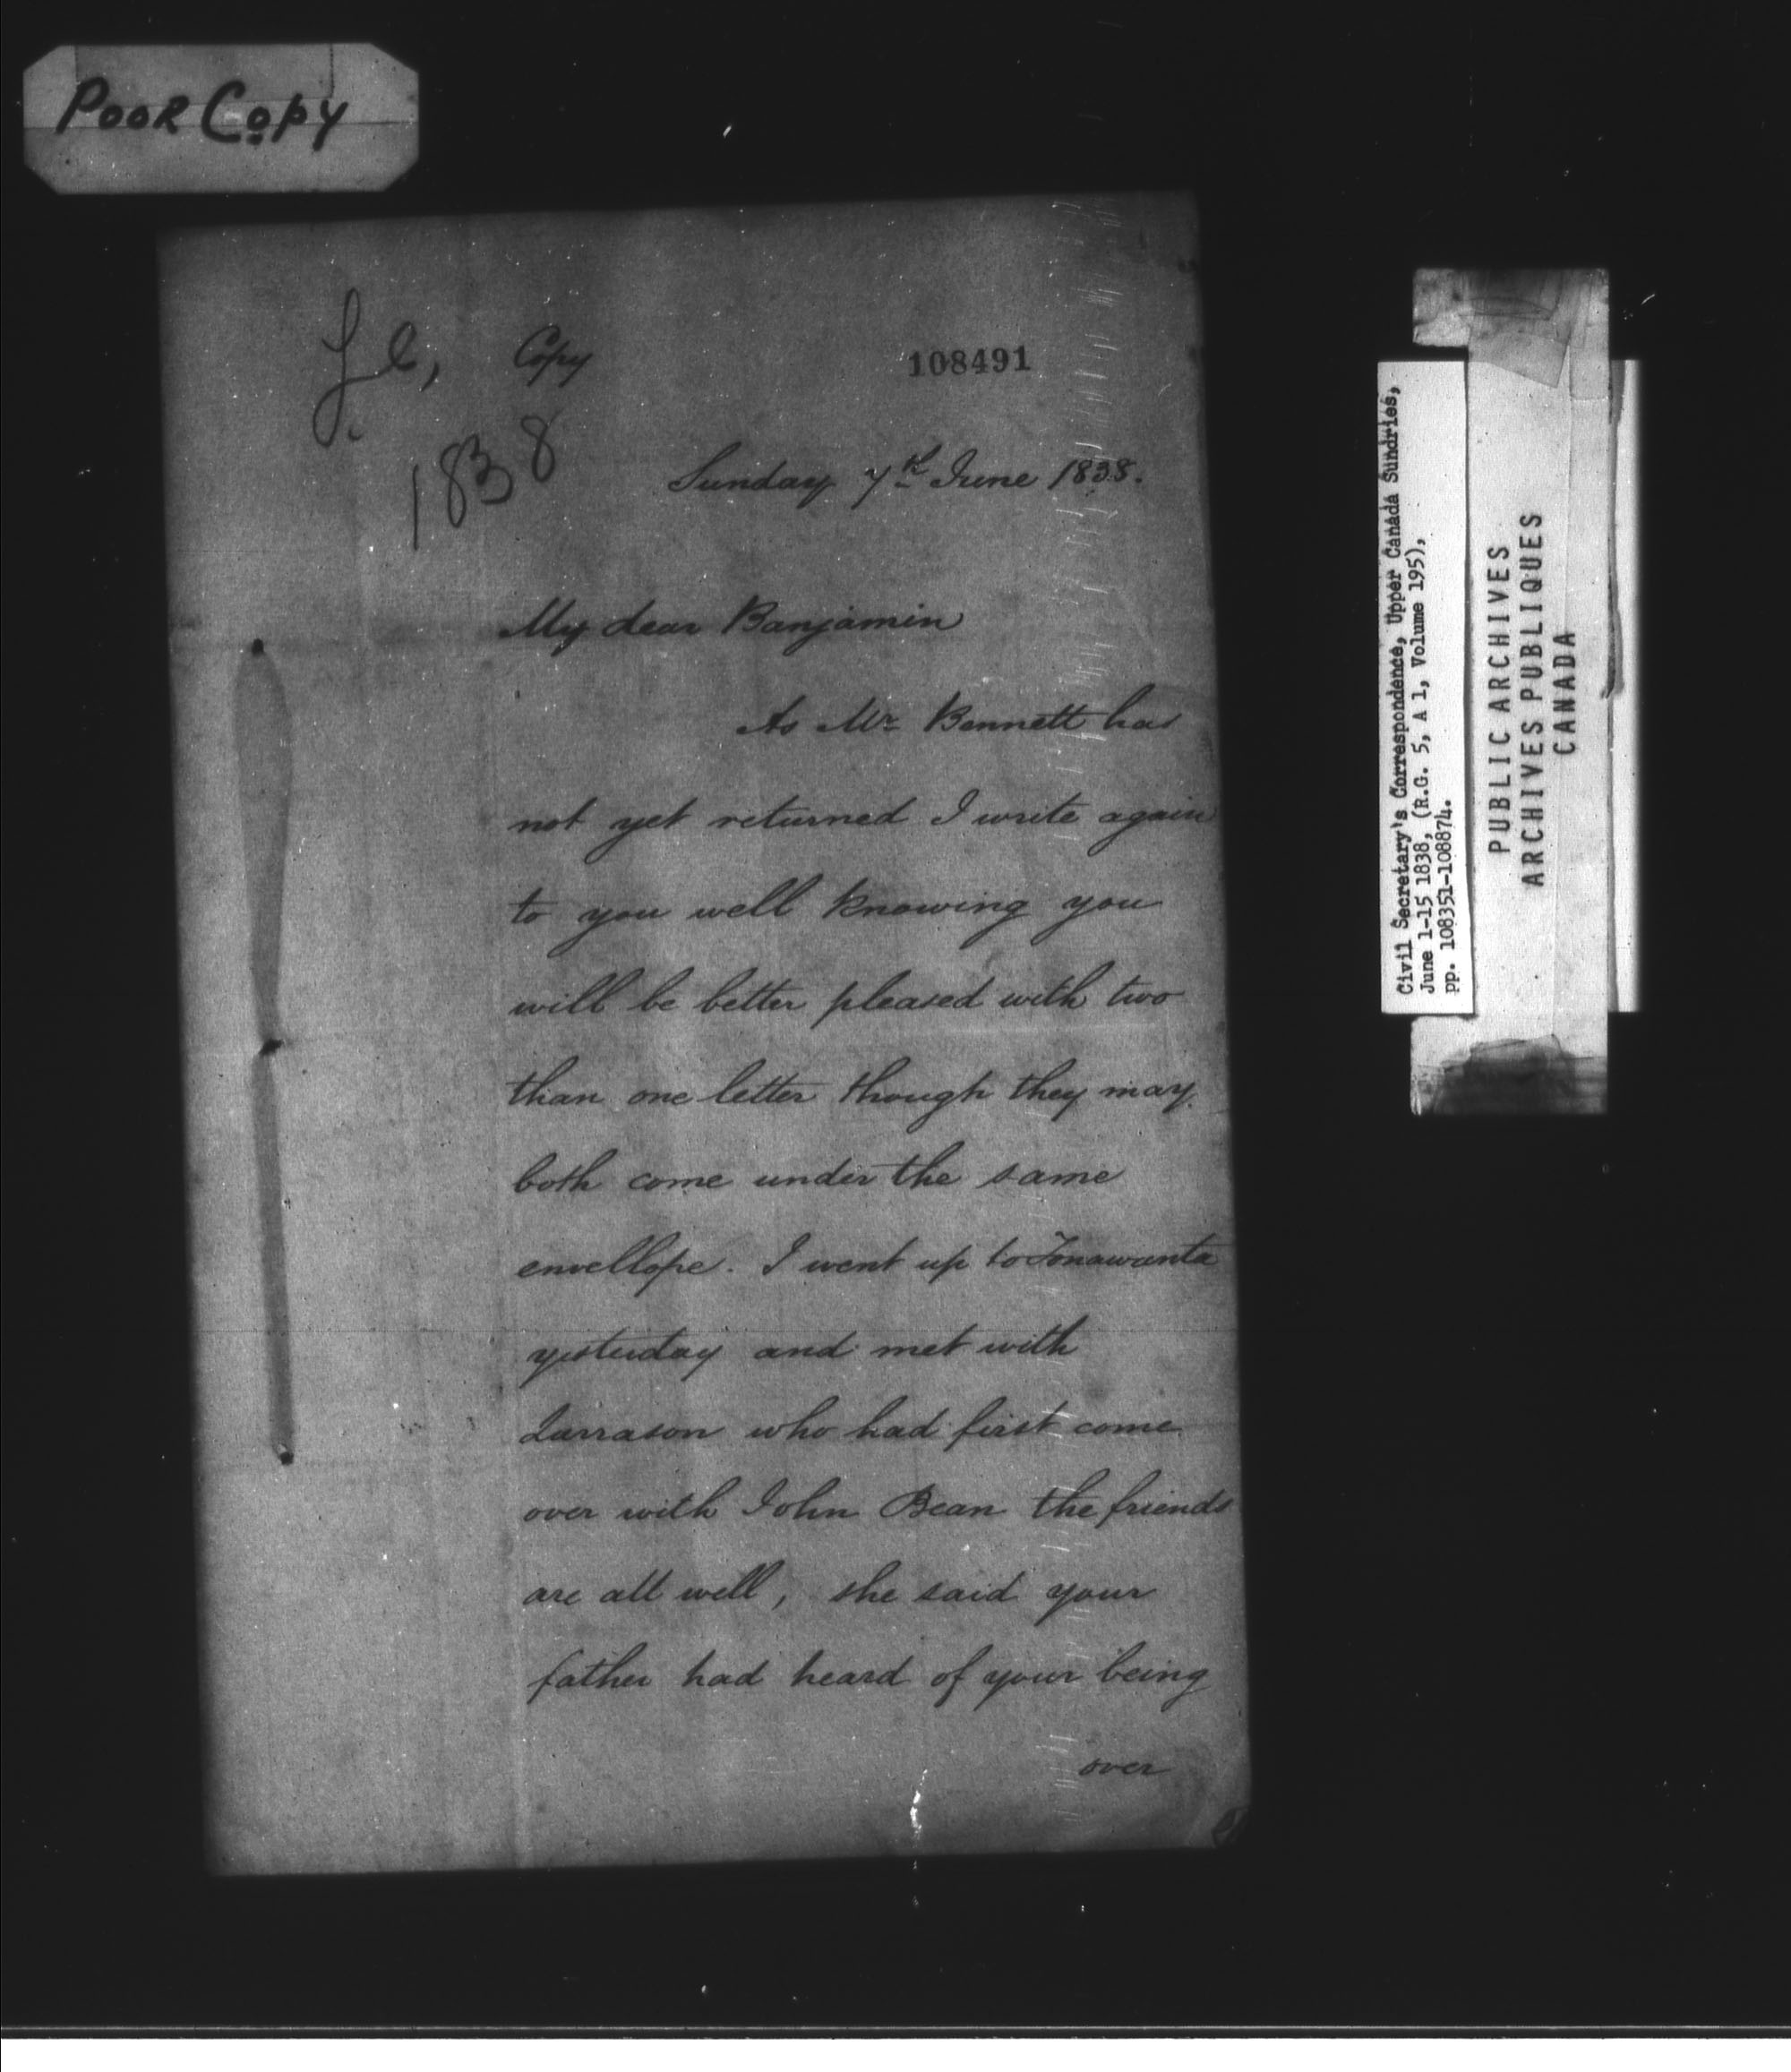 POOR COPY
Copy
108491
1838
Sunday 7th June 1838.
My dear Banjamin
As Mr Bennett has
not yet returned I write again
to you well knowing you
will be better pleased with two
than one letter though they may
both come under the same
envellope. I went up to Tonawanta
yesterday and met with
who had first come
over with John Bean the friends
are all well, she said your
father had heard of your being
over
Civil Secretary's Correspondence, Upper Canada Sundries,
June 1-15 1838, (R.G. 5, A 1, Volume 195),
pp. 108351-108874.
PUBLIC ARCHIVES
ARCHIVES PUBLIQUES
CANADA